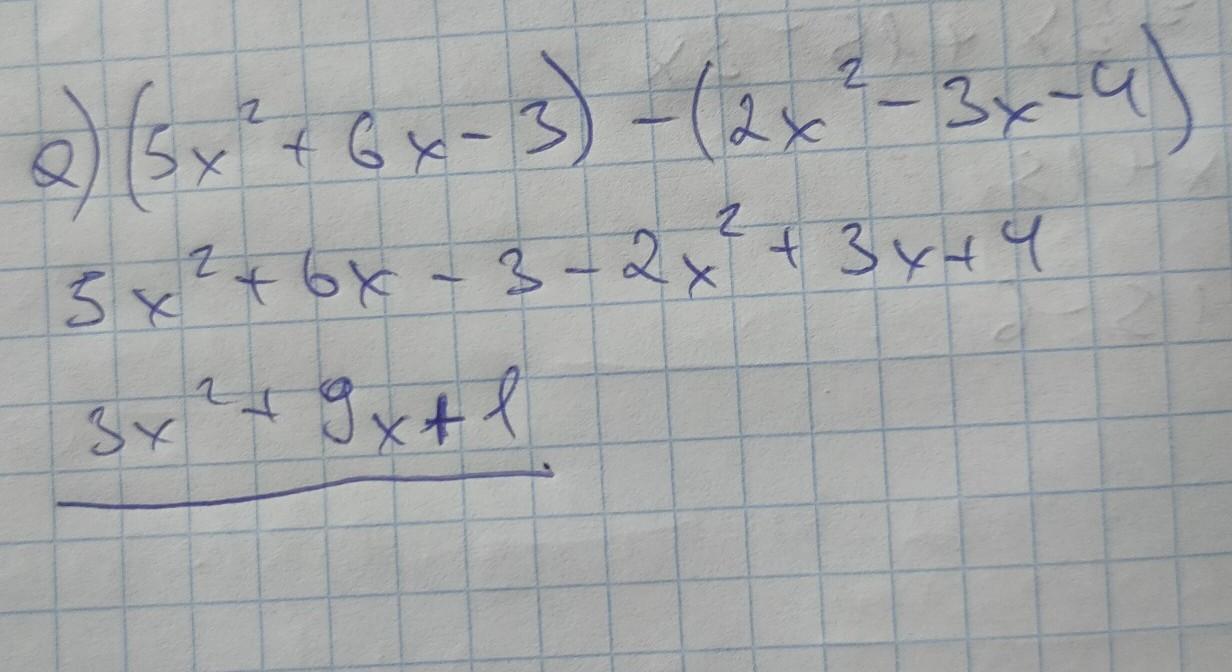 a) (5x² + 6x - 3) - (2x² - 3x - 4)
5x² + 6x - 3 - 2x² + 3x + 4
3x² + 9x + 1